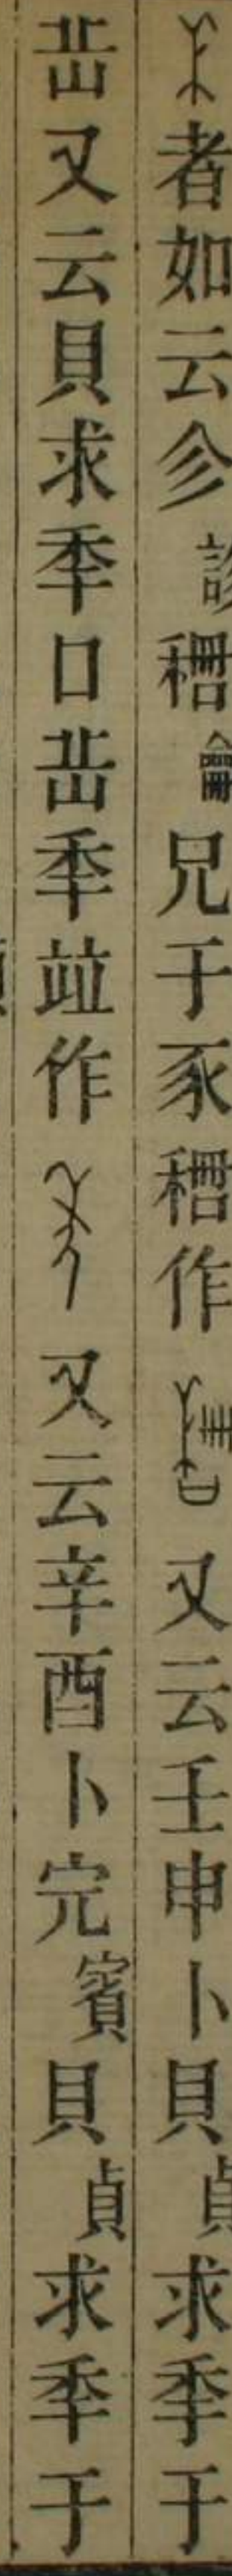 者如云㐱診䅵兄于豕䅵作又云壬申卜貝貞求季于
岳又云貝求秊口岳秊竝作又云辛酉卜㝎賓貝貞求秊于